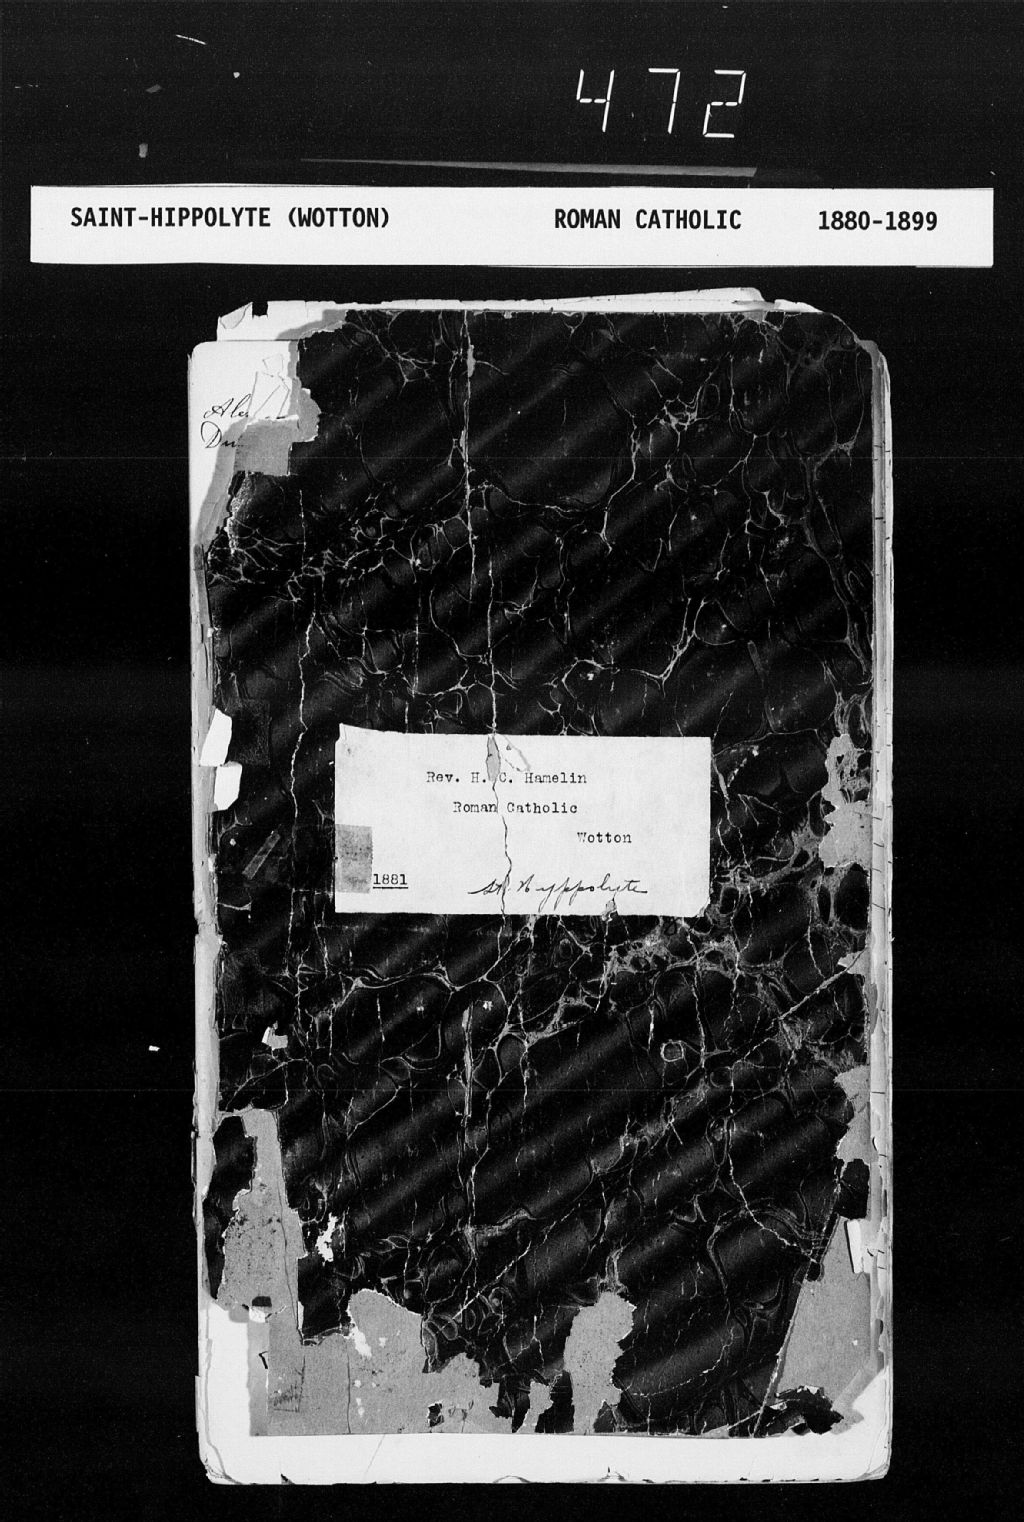 472
SAINT-HIPPOLYTE (WOTTON) ROMAN CATHOLIC 1880-1899
Rev. H. C. Hamelin
Roman Catholic
Wotton
1881
St. Hyppolyte